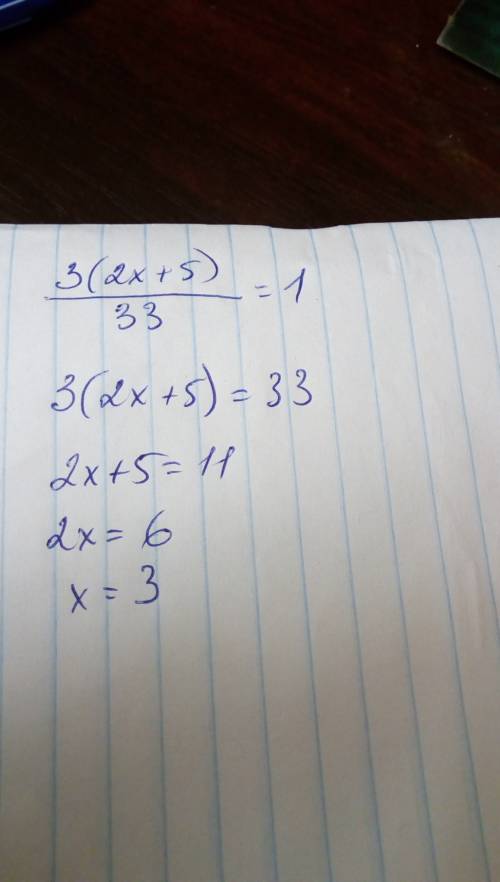 3(2x+5)/33 = 1
3(2x+5) = 33
2x+5 = 11
2x = 6
x = 3